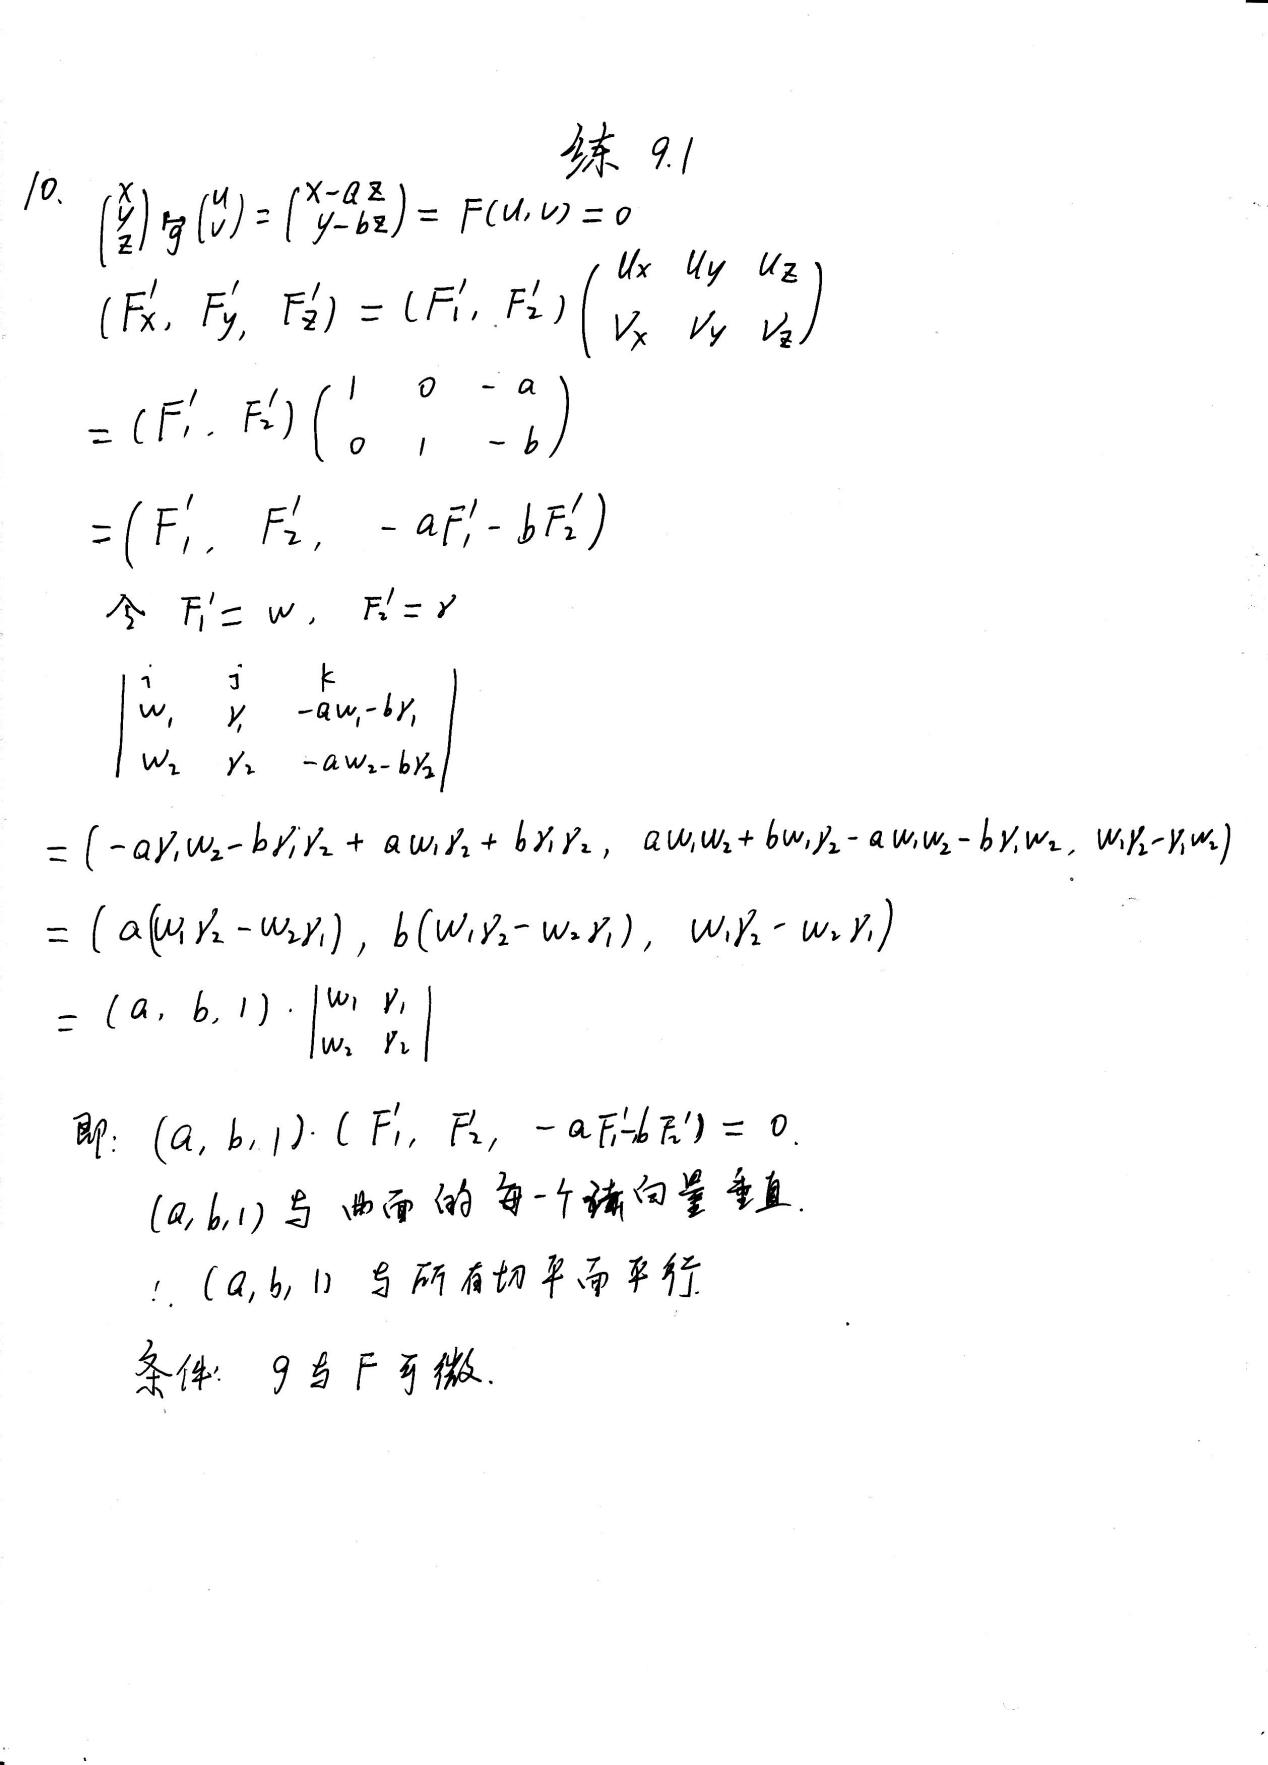 练 9.1
10. (x y z) →g (u v) = (x-az y-bz) = F(u,v) = 0
(F'x, F'y, F'z) = (F'1, F'2) (ux uy uz
vx vy vz)
= (F'1, F'2) (1 0 -a
0 1 -b)
= (F'1, F'2, -aF'1-bF'2)
令 F'1 = w, F'2 = γ
|i j k
w1 γ1 -aw1-bγ1
w2 γ2 -aw2-bγ2|
= (-aγ1w2-bγ1γ2+aw1γ2+bγ1γ2, aw1w2+bw1γ2-aw1w2-bγ1w2, w1γ2-γ1w2)
= (a(w1γ2-w2γ1), b(w1γ2-w2γ1), w1γ2-w2γ1)
= (a, b, 1)·|w1 γ1
w2 γ2|
即: (a, b, 1)·(F'1, F'2, -aF'1-bF'2) = 0.
(a,b,1) 与 曲面 的 每一个 法向量 垂直.
∴ (a, b, 1) 与 所有切平面平行.
条件: g 与 F 可微.